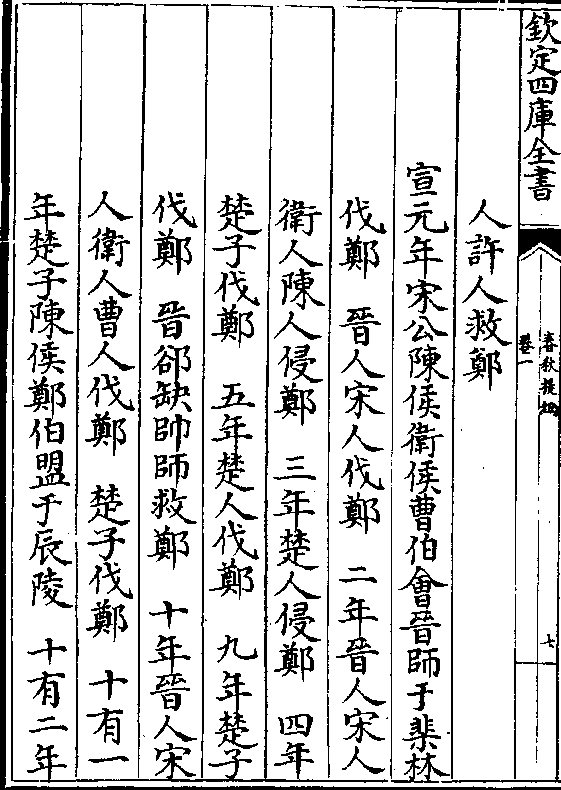 欽定四庫全書
春秋提綱
卷一
七
人許人救鄭
宣元年宋公陳侯衛侯曹伯會晉師于棐林
伐鄭　晉人宋人伐鄭　二年晉人宋人
衛人陳人侵鄭　三年楚人侵鄭　四年
楚子伐鄭　五年楚人伐鄭　九年楚子
伐鄭　晉郤缺帥師救鄭　十年晉人宋
人衛人曹人伐鄭　楚子伐鄭　十有一
年楚子陳侯鄭伯盟于辰陵　十有二年